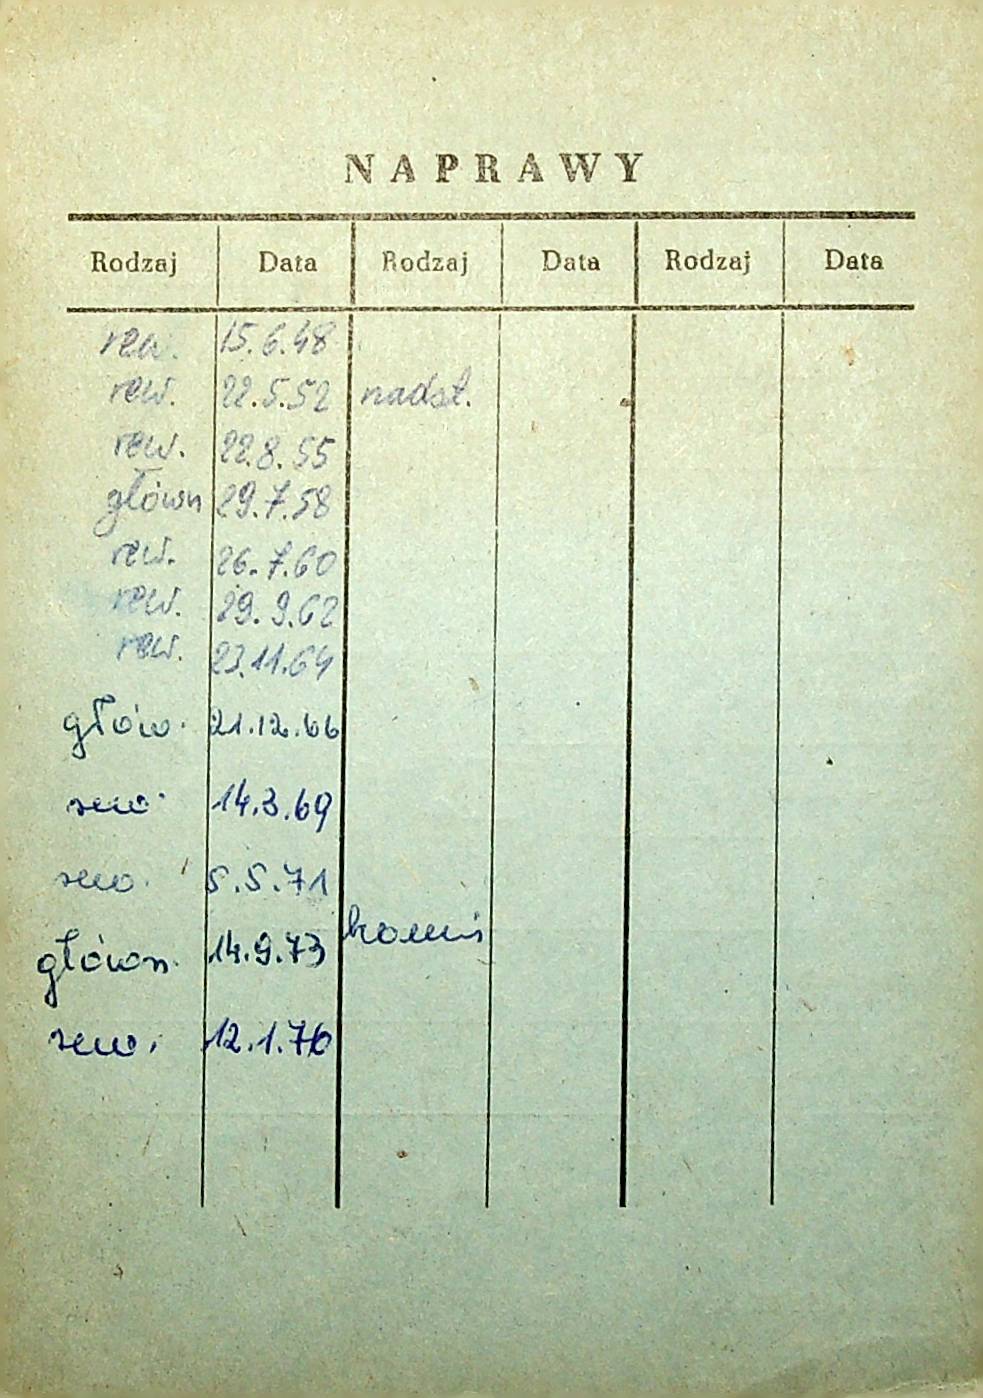 NAPRAWY
Rodzaj Data Rodzaj Data Rodzaj Data
rew. 15.6.48
rew. 22.5.52 nadst.
rew. 22.8.55
główn 29.7.58
rew. 26.7.60
rew. 29.9.62
rew. 23.11.64
głów. 21.12.66
rew. 14.3.69
rew. 5.5.71
główn. 14.9.73 komis
rew. 12.1.76